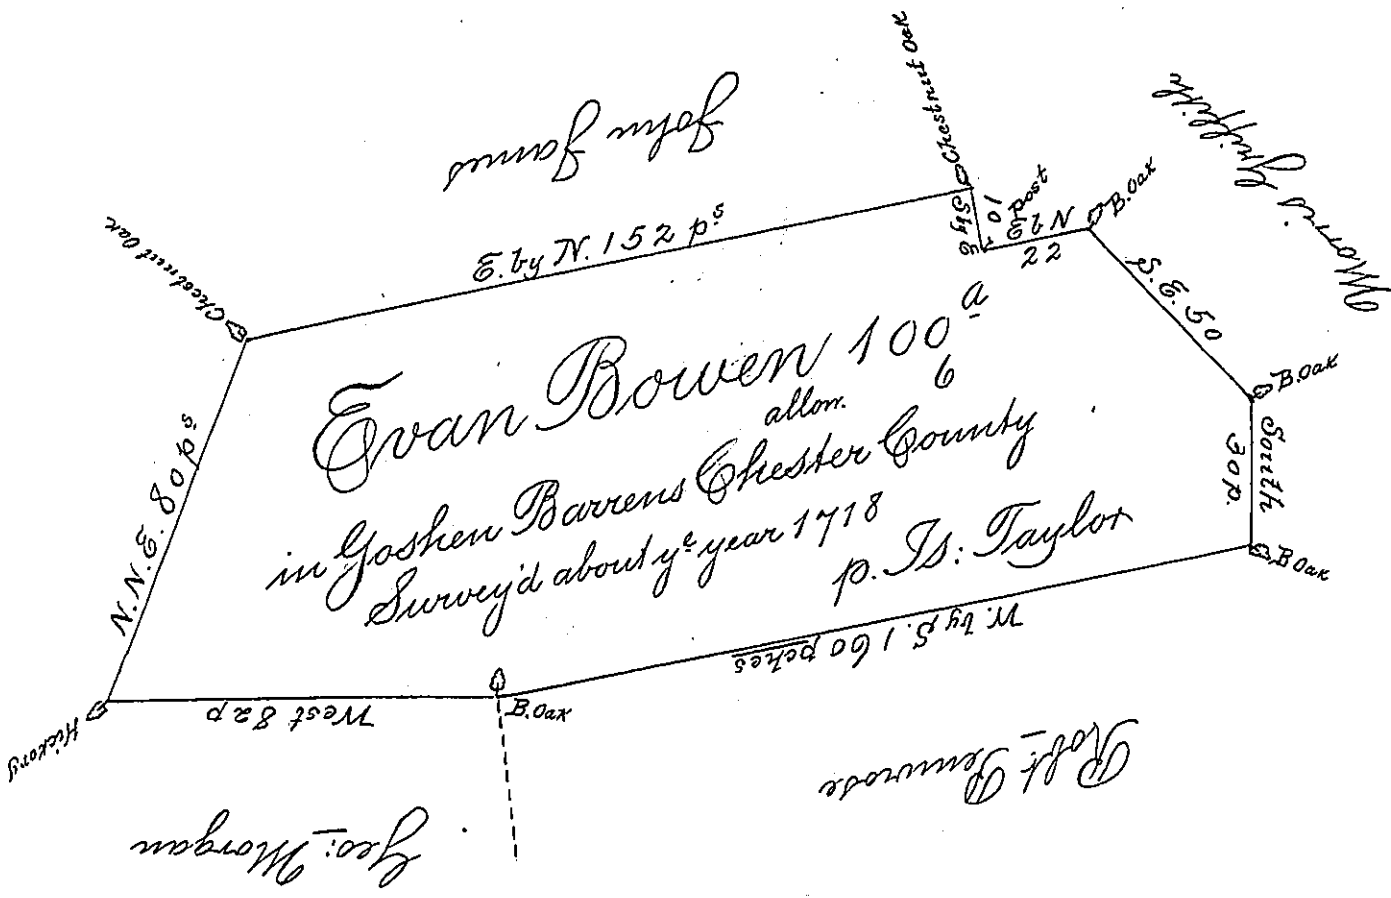 John James
Morris Griffith
Chestnut Oak
Chestnut Oak
E. by N. 152 pˢ
S by E
10
post
E b N
22
B. Oak
S. E. 50
B. Oak
South
30 p.
B Oak
Evan Bowen 100 a
allow. 6
in Goshen Barrens Chester County
Survey'd about yᵉ year 1718
p. Is: Taylor
N. N. E. 80 pˢ
W. by S. 160 pches
West 82 p
B. Oak
Hickory
Robt. Penrose
Geo: Morgan